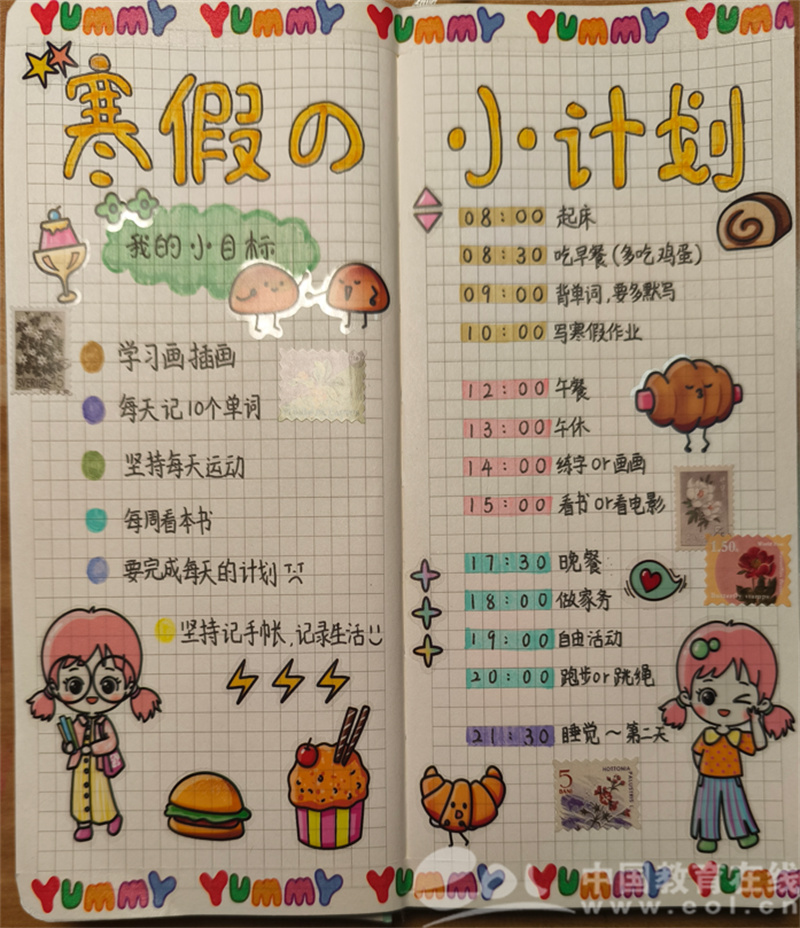 YUMMY YUMMY YUMMY YUMMY YUMM
寒假の
小计划
我的小目标
学习画插画
每天记10个单词
坚持每天运动
每周看本书
要完成每天的计划
坚持记手帐,记录生活
08:00 起床
08:30 吃早餐(多吃鸡蛋)
09:00 背单词,要多默写
10:00 写寒假作业
12:00 午餐
13:00 午休
14:00 练字or画画
15:00 看书or看电影
1.50.
17:30 晚餐
18:00 做家务
19:00 自由活动
20:00 跑步or跳绳
21:30 睡觉~第二天
5
HOTTONIA PALUSTRIS
YUMMY YUMMY YUMMY YUMMY YUMM
中国教育在线
www.eol.cn